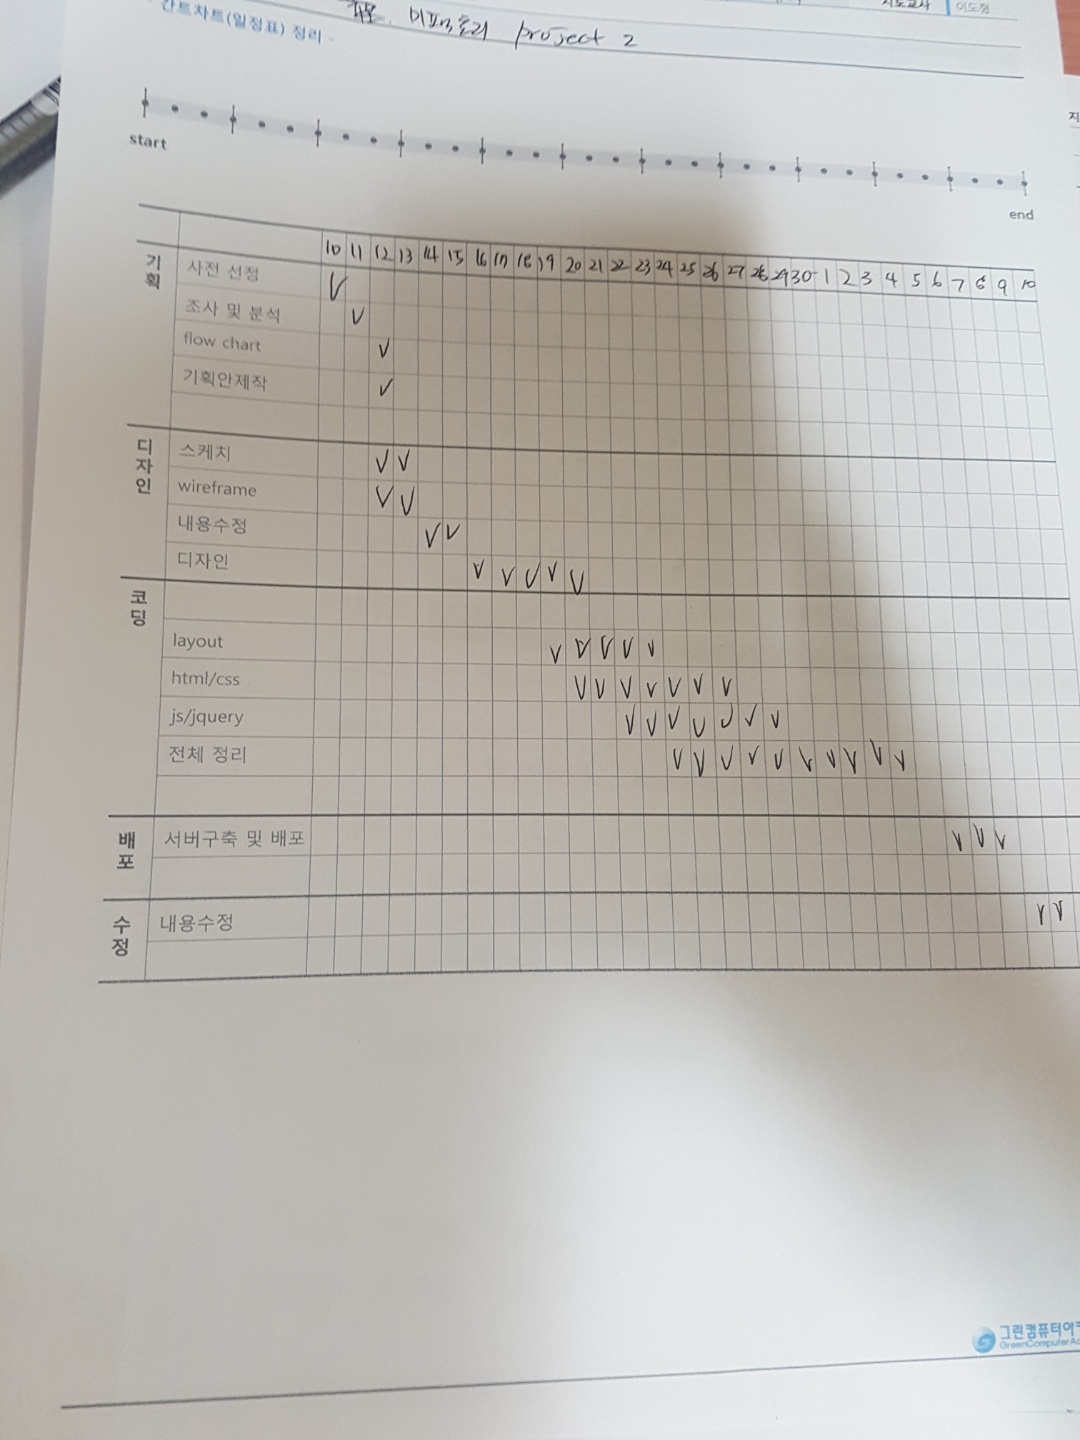 지도교사 이도형
간트차트(일정표) 정리 -
project 2
start
end
10 11 12 13 14 15 16 17 18 19 20 21 22 23 24 25 26 27 28 29 30 1 2 3 4 5 6 7 8 9 10
기획
사전 선정 V
조사 및 분석 V
flow chart V
기획안제작 V
디자인
스케치 V V
wireframe V V
내용수정 V V
디자인 V V V V V
코딩
layout V V V V V
html/css V V V V V V V
js/jquery V V V V V V V
전체 정리 V V V V V V V V V V
배포
서버구축 및 배포 V V V
수정
내용수정 V V
그린컴퓨터아
GreenComputerAc